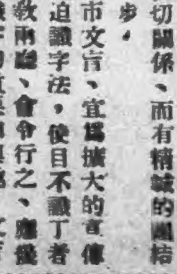 切關係、而有精誠的團結
步。
市文盲、宜爲擴大的宣傳
迫識字法、使目不識丁者
敎兩聽、會令行之、應從